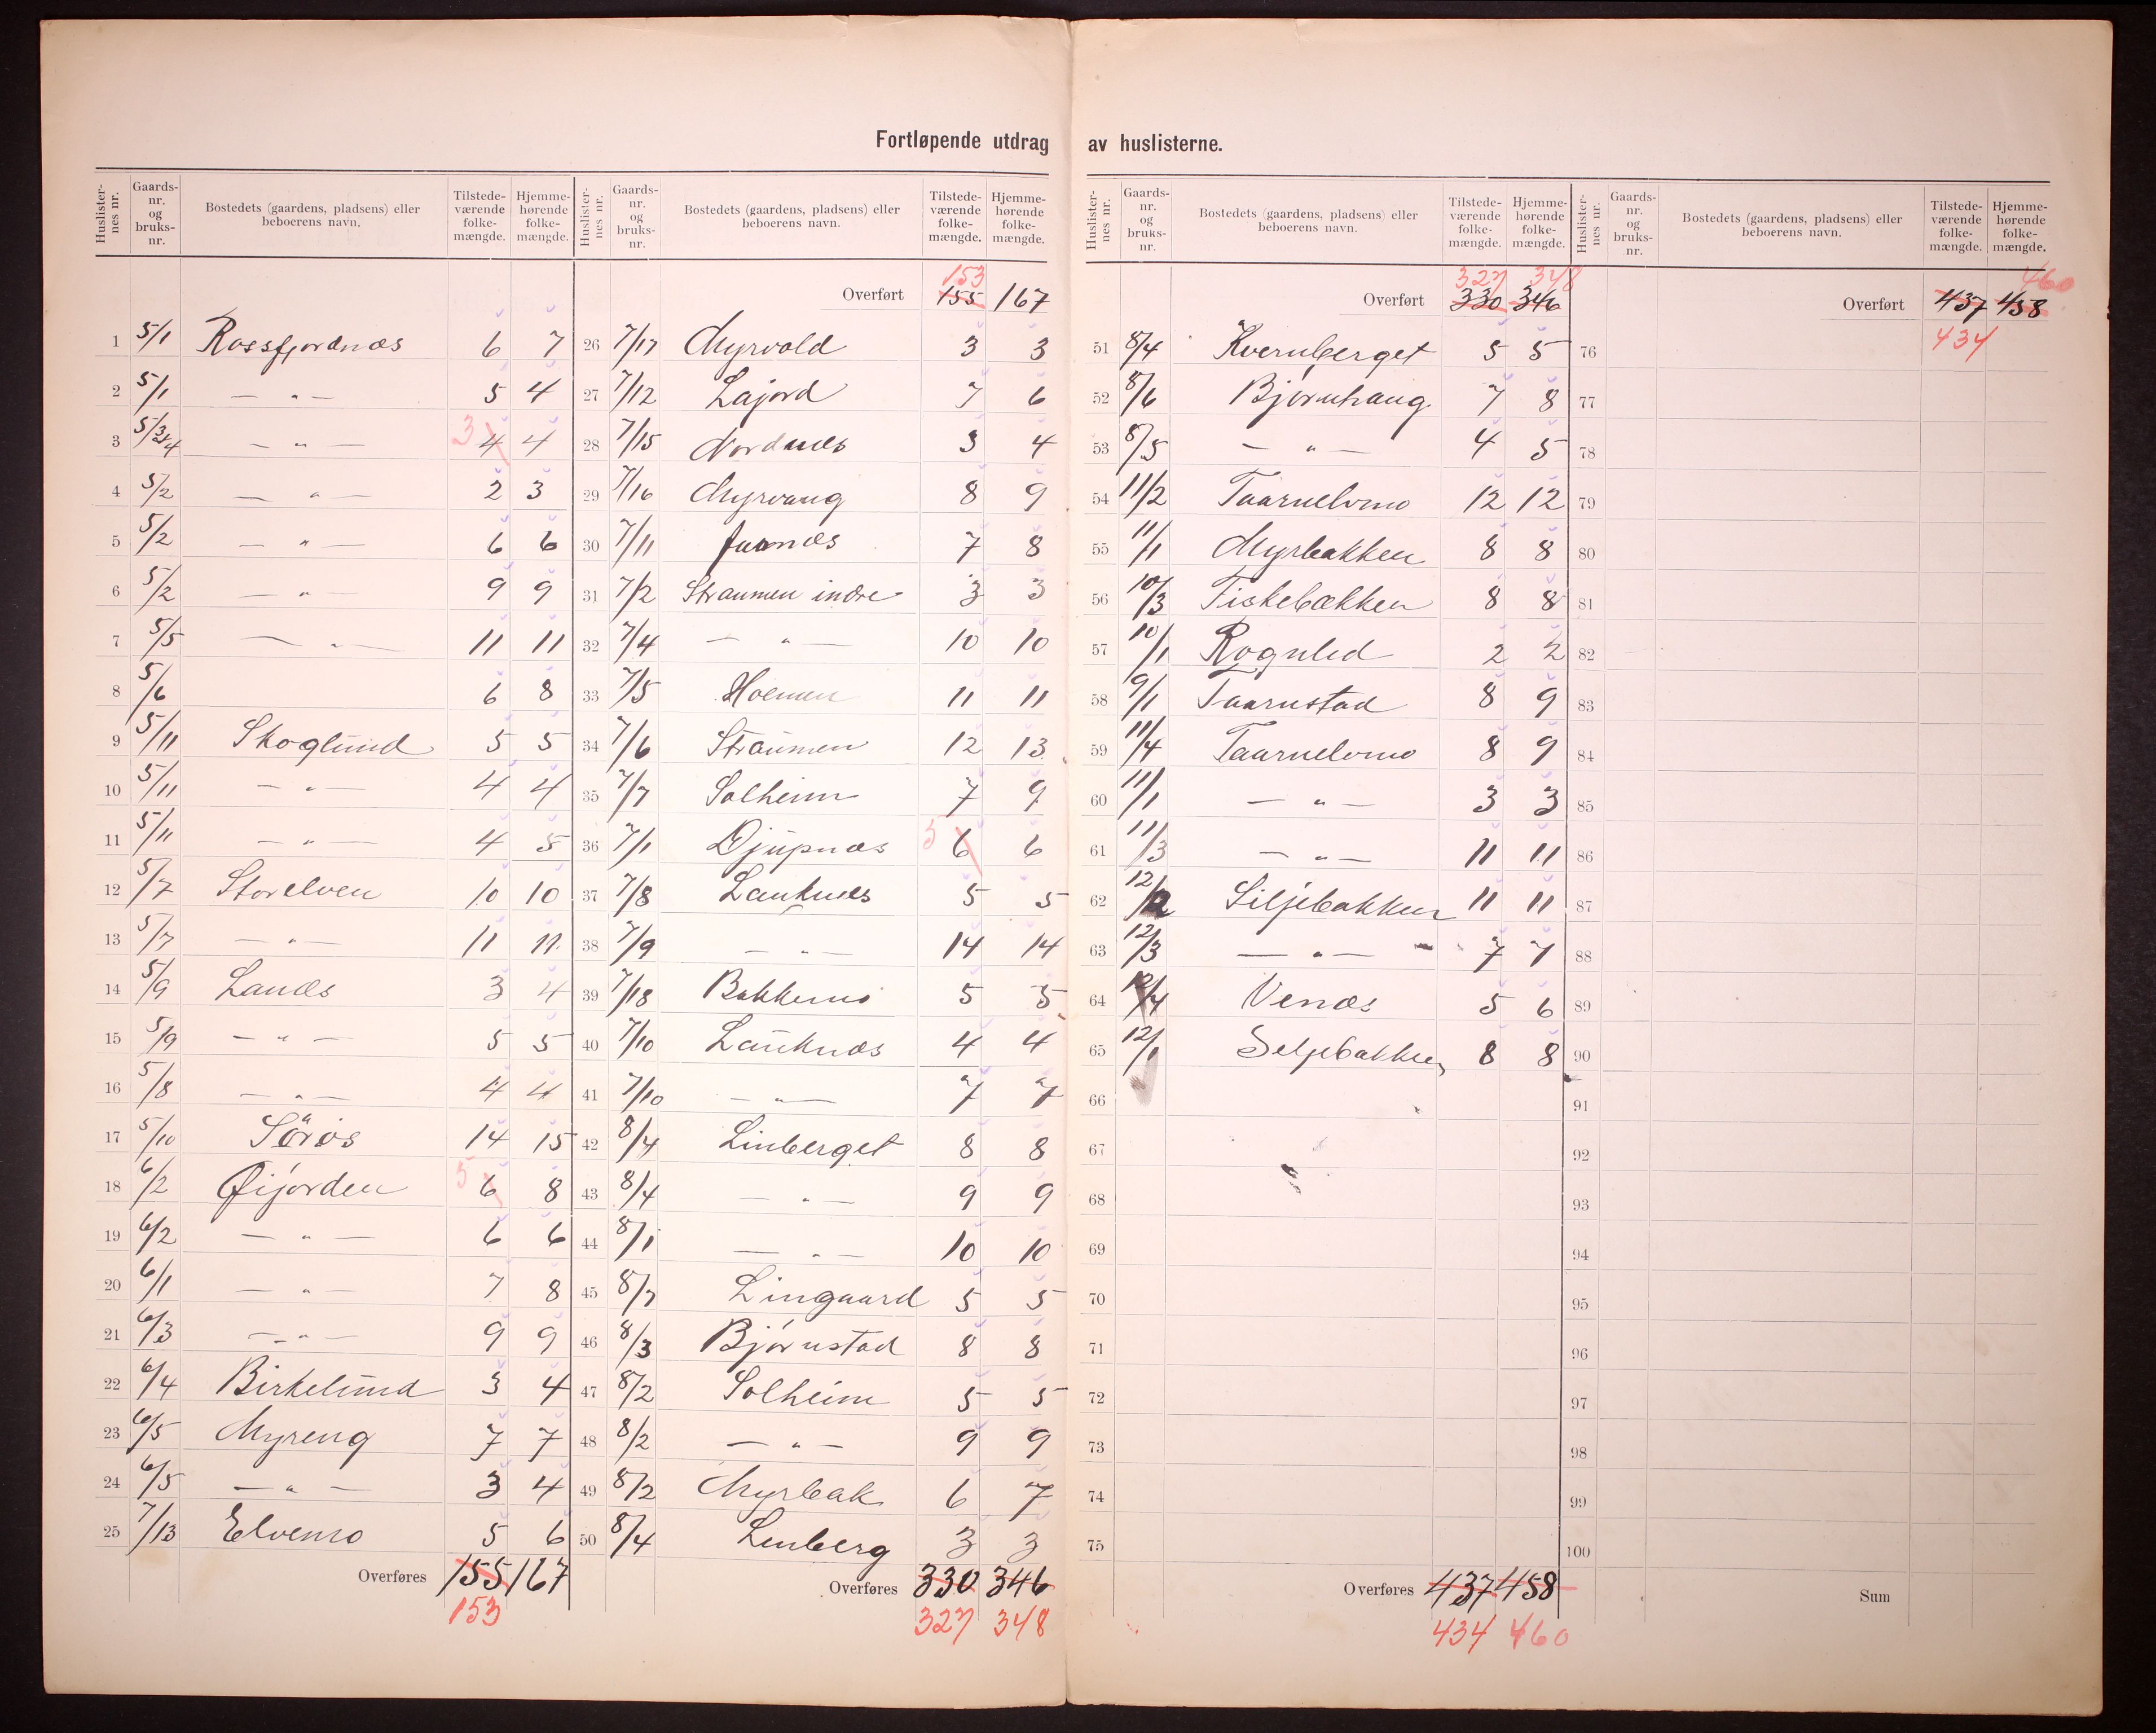 Fortløpende utdrag av huslisterne.
Huslister-nes nr. Gaards-nr. og bruks-nr. Bostedets (gaardens, pladsens) eller beboerens navn. Tilstede-værende folke-mængde. Hjemme-hørende folke-mængde.
1 5/1 Rossfjordnæs 6 7
2 5/1 — " — 5 4
3 5/3+4 — " — 3 4 4
4 5/2 — " — 2 3
5 5/2 — " — 6 6
6 5/2 — " — 9 9
7 5/5 — " — 11 11
8 5/6 6 8
9 5/11 Skoglund 5 5
10 5/11 — " — 4 4
11 5/11 — " — 4 5
12 5/7 Storelven 10 10
13 5/7 — " — 11 11
14 5/9 Lanæs 3 4
15 5/9 — " — 5 5
16 5/8 — " — 4 4
17 5/10 14 15
18 6/2 Øijorden 5 6 8
19 6/2 — " — 6 6
20 6/1 — " — 7 8
21 6/3 — " — 9 9
22 6/4 Birkelund 3 4
23 6/5 Myreng 7 7
24 6/5 — " — 3 4
25 7/13 Elvemo 5 6
Overføres 155 167
153
Huslister-nes nr. Gaards-nr. og bruks-nr. Bostedets (gaardens, pladsens) eller beboerens navn. Tilstede-værende folke-mængde. Hjemme-hørende folke-mængde.
153
Overført 155 167
26 7/17 Myrvold 3 3
27 7/12 Lajord 7 6
28 7/15 Nordnæs 3 4
29 7/16 Myrvang 8 9
30 7/11 7 8
31 7/2 Straumen indre 3 3
32 7/4 — " — 10 10
33 7/5 Holmen 11 11
34 7/6 Straumen 12 13
35 7/7 Solheim 7 9
36 7/1 Djupnæs 5 6 6
37 7/8 Lauknes 5 5
38 7/9 — " — 14 14
39 7/18 Bakkemo 5 5
40 7/10 Lauknæs 4 4
41 7/10 — " — 7 7
42 8/4 Linberget 8 8
43 8/4 — " — 9 9
44 8/1 — " — 10 10
45 8/7 Lingaard 5 5
46 8/3 Bjørnstad 8 8
47 8/2 Solheim 5 5
48 8/2 — " — 9 9
49 8/2 Myrbak 6 7
50 8/4 Linberg 3 3
Overføres 330 346
327 348
Huslister-nes nr. Gaards-nr. og bruks-nr. Bostedets (gaardens, pladsens) eller beboerens navn. Tilstede-værende folke-mængde. Hjemme-hørende folke-mængde.
327 348
Overført 330 346
51 8/4 Kvernberget 5 5
52 8/6 Bjørnhaug 7 8
53 8/5 — " — 4 5
54 11/2 Taarnelvmo 12 12
55 11/1 Myrbakken 8 8
56 10/3 Fiskebækken 8 8
57 10/1 Rognlid 2 2
58 9/1 Taarnstad 8 9
59 11/4 Taarnelvmo 8 9
60 11/1 — " — 3 3
61 11/3 — " — 11 11
62 12/2 Siljebakken 11 11
63 12/3 — " — 7 7
64 12/4 Venæs 5 6
65 12/1 Seljebakken 8 8
66
67
68
69
70
71
72
73
74
75
Overføres 437 458
434 460
Huslister-nes nr. Gaards-nr. og bruks-nr. Bostedets (gaardens, pladsens) eller beboerens navn. Tilstede-værende folke-mængde. Hjemme-hørende folke-mængde.
460
Overført 437 458
434
76
77
78
79
80
81
82
83
84
85
86
87
88
89
90
91
92
93
94
95
96
97
98
99
100
Sum